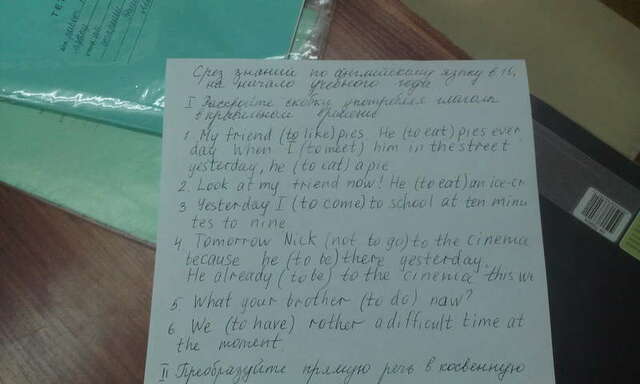 ТЕ
Срез знаний по английскому языку в
на начало учебного года
I Раскройте скобки употребляя глаголы
в правильном времени
1. My friend (to like) pies. He (to eat) pies ever
day. When I (to meet) him in the street
yesterday, he (to eat) a pie.
2. Look at my friend now! He (to eat) an ice-cr
3 Yesterday I (to come) to school at ten minu
tes to nine
4 Tomorrow Nick (not to go) to the cinema
because he (to be) there yesterday.
He already (to be) to the cinema this we
5 What your brother (to do) now?
6. We (to have) rather a difficult time at
the moment.
II Преобразуйте прямую речь в косвенную